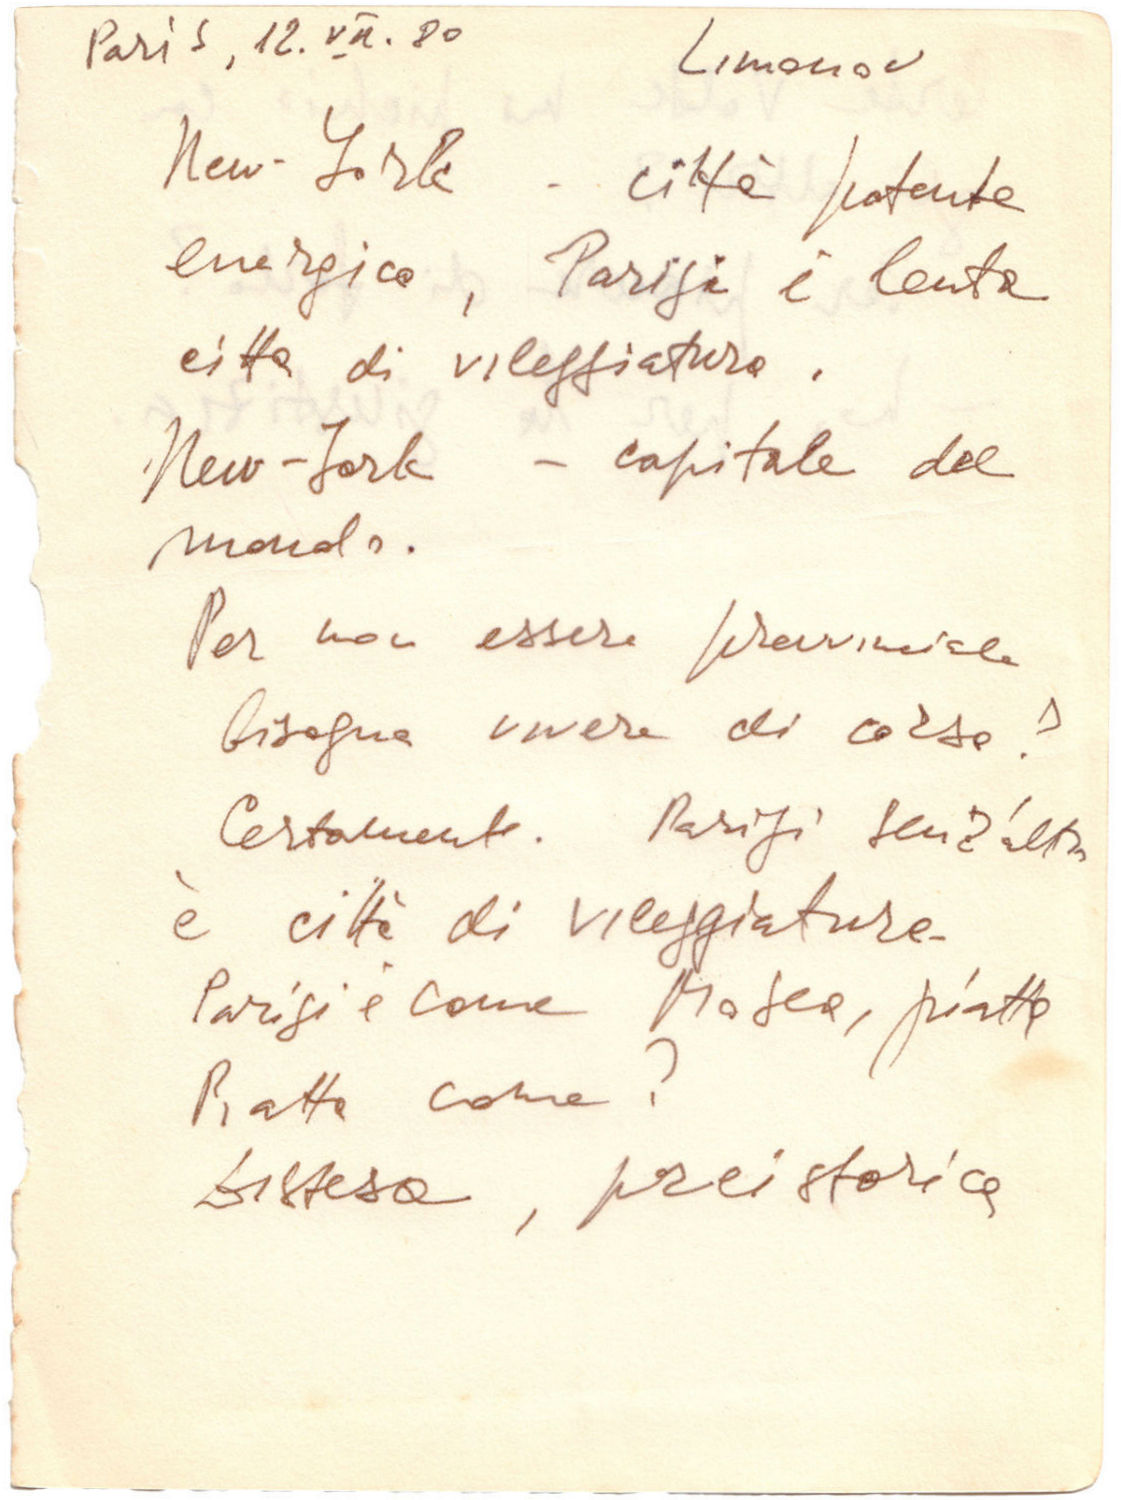 Paris, 12. VII. 80 Limonov
New-York - città potente
energica, Parigi è lenta
citta di vileggiatura.
New-York - capitale del
mondo.
Per non essere provinciale
bisogna vivere di corsa?
Certamente. Parigi senz'altro
è città di vileggiatura
Parigi è come Mosca, piatta
Piatta come?
Distesa, preistorica